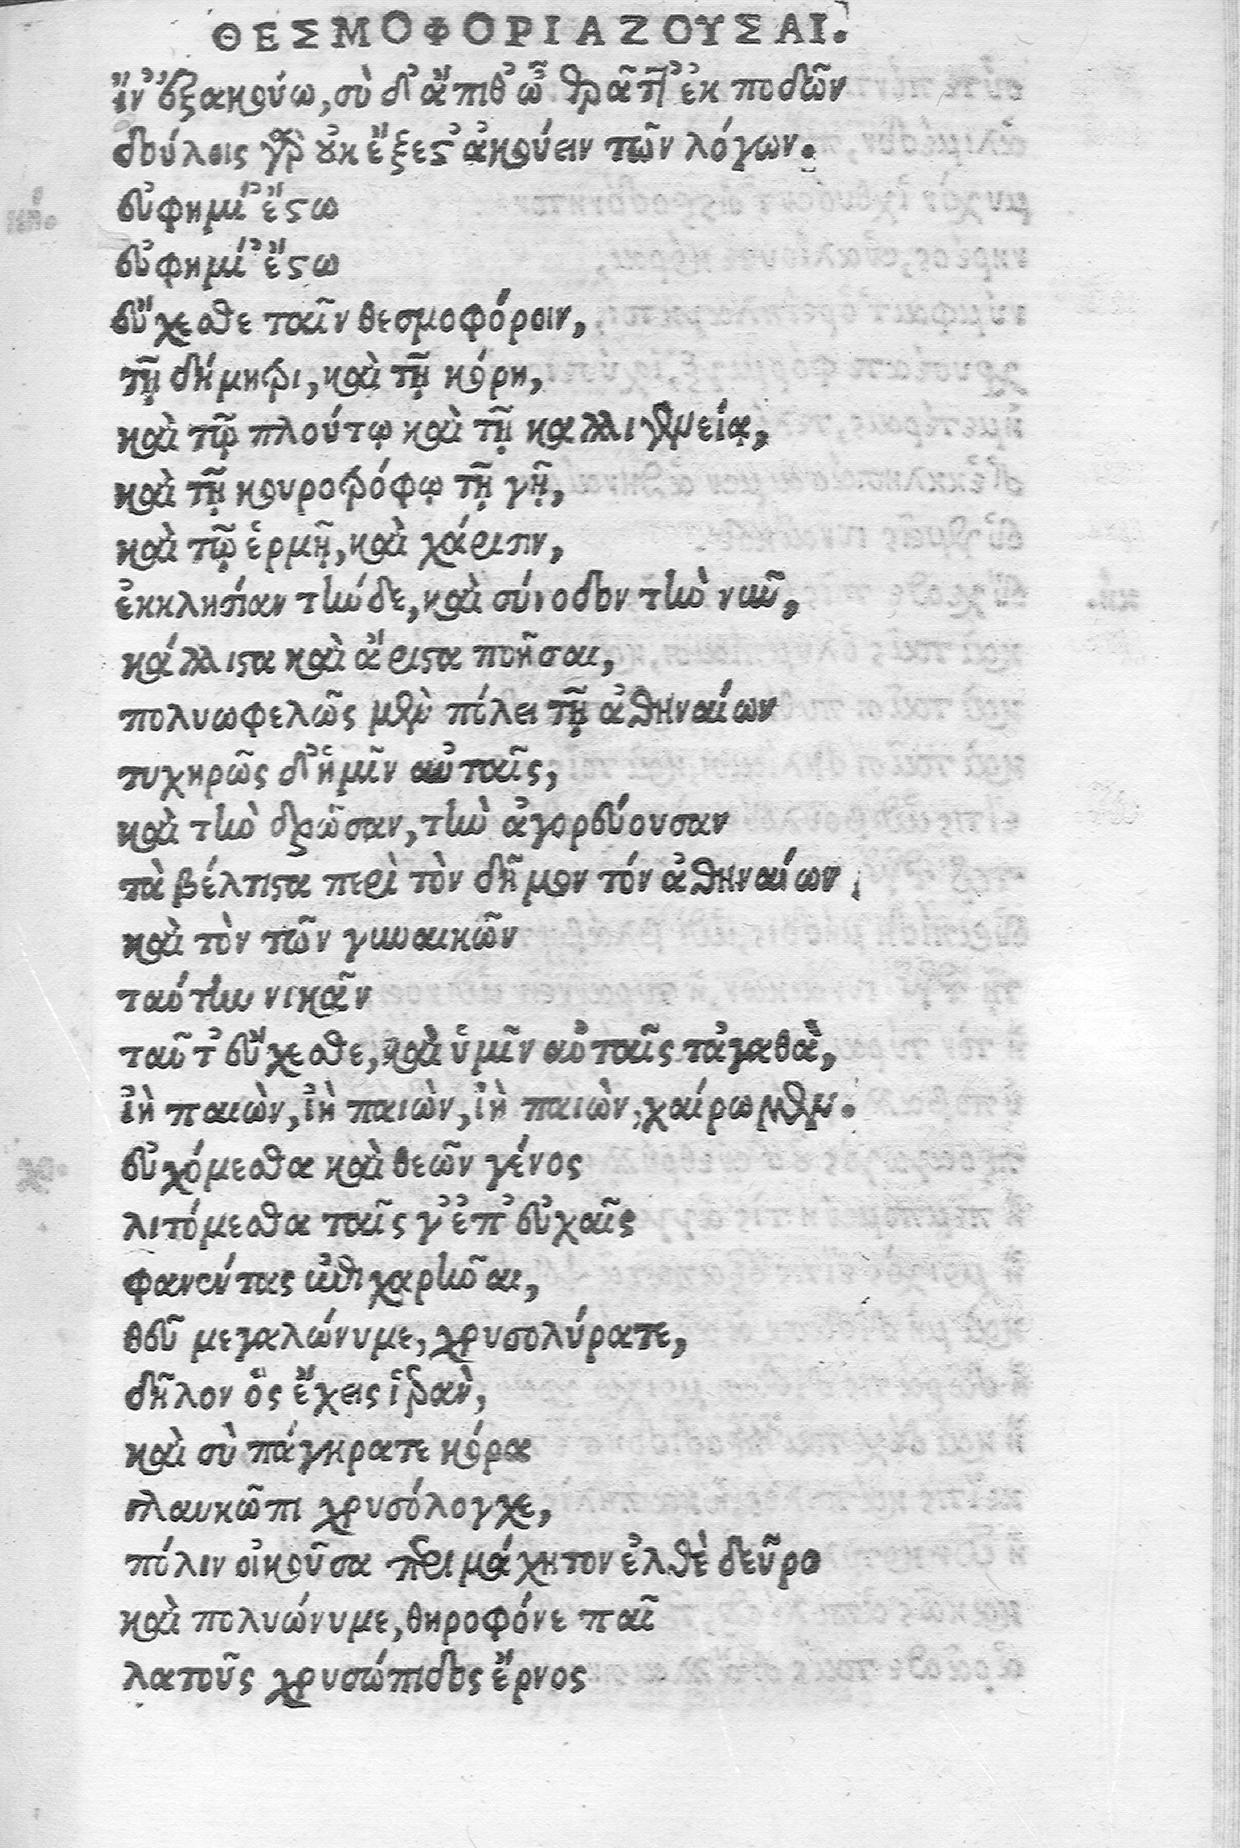 ΘΕΣΜΟΦΟΡΙΑΖΟΥΣΑΙ.
ἵν ἐξακούω, σὺ δ' ἄπιθ' ὦ θρᾶττ' ἐκ ποδῶν
δούλοις γὰρ οὐκ ἔξεστ' ἀκούειν τῶν λόγων.
εὐφημί' ἔστω
εὐφημί' ἔστω
εὔχεσθε ταῖν θεσμοφόροιν,
τῇ δήμητρι, καὶ τῇ κόρῃ,
καὶ τῷ πλούτῳ καὶ τῇ καλλιγενείᾳ,
καὶ τῇ κουροτρόφῳ τῇ γῇ,
καὶ τῷ ἑρμῇ, καὶ χάρισιν,
ἐκκλησίαν τήνδε, καὶ σύνοδον τὴν νῦν,
κάλλιστα καὶ ἄριστα ποῆσαι,
πολυωφελῶς μὲν πόλει τῇ ἀθηναίων
τυχηρῶς δ' ἡμῖν αὐταῖς,
καὶ τὴν δρῶσαν, τὴν ἀγορεύουσαν
τὰ βέλτιστα περὶ τὸν δῆμον τόν ἀθηναίων,
καὶ τὸν τῶν γυναικῶν
ταύτην νικᾶν
ταῦτ' εὔχεσθε, καὶ ὑμῖν αὐταῖς τἀγαθὰ,
ἰὴ παιὼν, ἰὴ παιὼν, ἰὴ παιὼν, χαίρωμεν.
εὐχόμεσθα καὶ θεῶν γένος
λιτόμεσθα ταῖς γ' ἐπ' εὐχαῖς
φανέντας ἐπιχαρῆναι,
ζεῦ μεγαλώνυμε, χρυσολύρατε,
δῆλον ὃς ἔχεις ἱρὰν,
καὶ σὺ πάγκρατε κόρα
γλαυκῶπι χρυσόλογχε,
πόλιν οἰκοῦσα περιμάχητον ἐλθὲ δεῦρο
καὶ πολυώνυμε, θηροφόνε παῖ
λατοῦς χρυσώπιδος ἔρνος